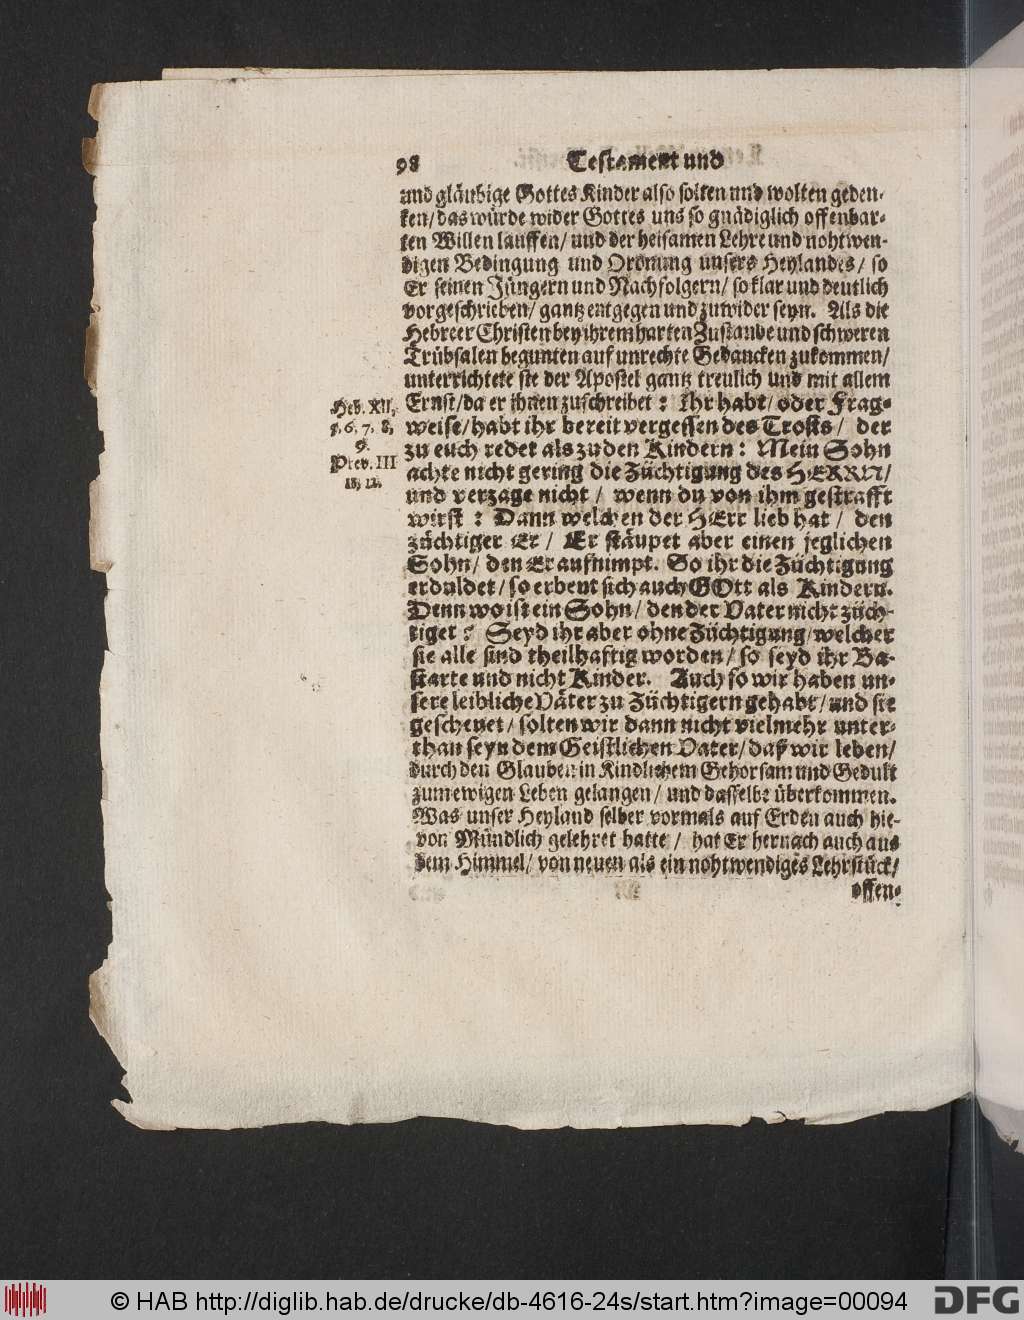 98 Testament und
und gläubige Gottes Kinder also solten und wolten geden-
ken/ das würde wider Gottes uns so gnädiglich offenbar-
ten Willen lauffen/ und der heisamen Lehre und nohtwen-
digen Bedingung und Ordnung unsers Heylandes/ so
Er seinen Jüngern und Nachfolgern/ so klar und deutlich
vorgeschrieben/ gantz entgegen und zuwider seyn. Als die
Hebreer Christen bey ihrem harten Zustande und schweren
Trübsalen begunten auf unrechte Gedancken zukommen/
unterrichtete sie der Apostel gantz treulich und mit allem
Ernst/ da er ihnen zuschreibet: Ihr habt/ oder Frag-
weise/ habt ihr bereit vergessen des Trosts/ der
zu euch redet als zu den Kindern: Mein Sohn
achte nicht gering die Züchtigung des HERRN/
und verzage nicht/ wenn du von ihm gestrafft
wirst: Dann welchen der HErr lieb hat/ den
züchtiger Er/ Er stäupet aber einen jeglichen
Sohn/ den Er aufnimpt. So ihr die Züchtigung
erduldet/ so erbeut sich auch GOtt als Kindern.
Denn wo ist ein Sohn/ den der Vater nicht züch-
tiget? Seyd ihr aber ohne Züchtigung/ welcher
sie alle sind theilhaftig worden/ so seyd ihr Ba-
starte und nicht Kinder. Auch so wir haben un-
sere leibliche Väter zu Züchtigern gehabt/ und sie
gescheuet/ solten wir dann nicht vielmehr unter-
than seyn dem Geistlichen Vater/ daß wir leben/
durch den Glauben in Kindlichem Gehorsam und Gedult
zum ewigen Leben gelangen/ und dasselbe überkommen.
Was unser Heyland selber vormals auf Erden auch hie-
von Mündlich gelehret hatte/ hat Er hernach auch aus
dem Himmel/ von neuen als ein nohtwendiges Lehrstück/
offen-
Heb. XII,
5, 6. 7, 8,
9.
Prov. III
11, 12.
© HAB http://diglib.hab.de/drucke/db-4616-24s/start.htm?image=00094
DFG